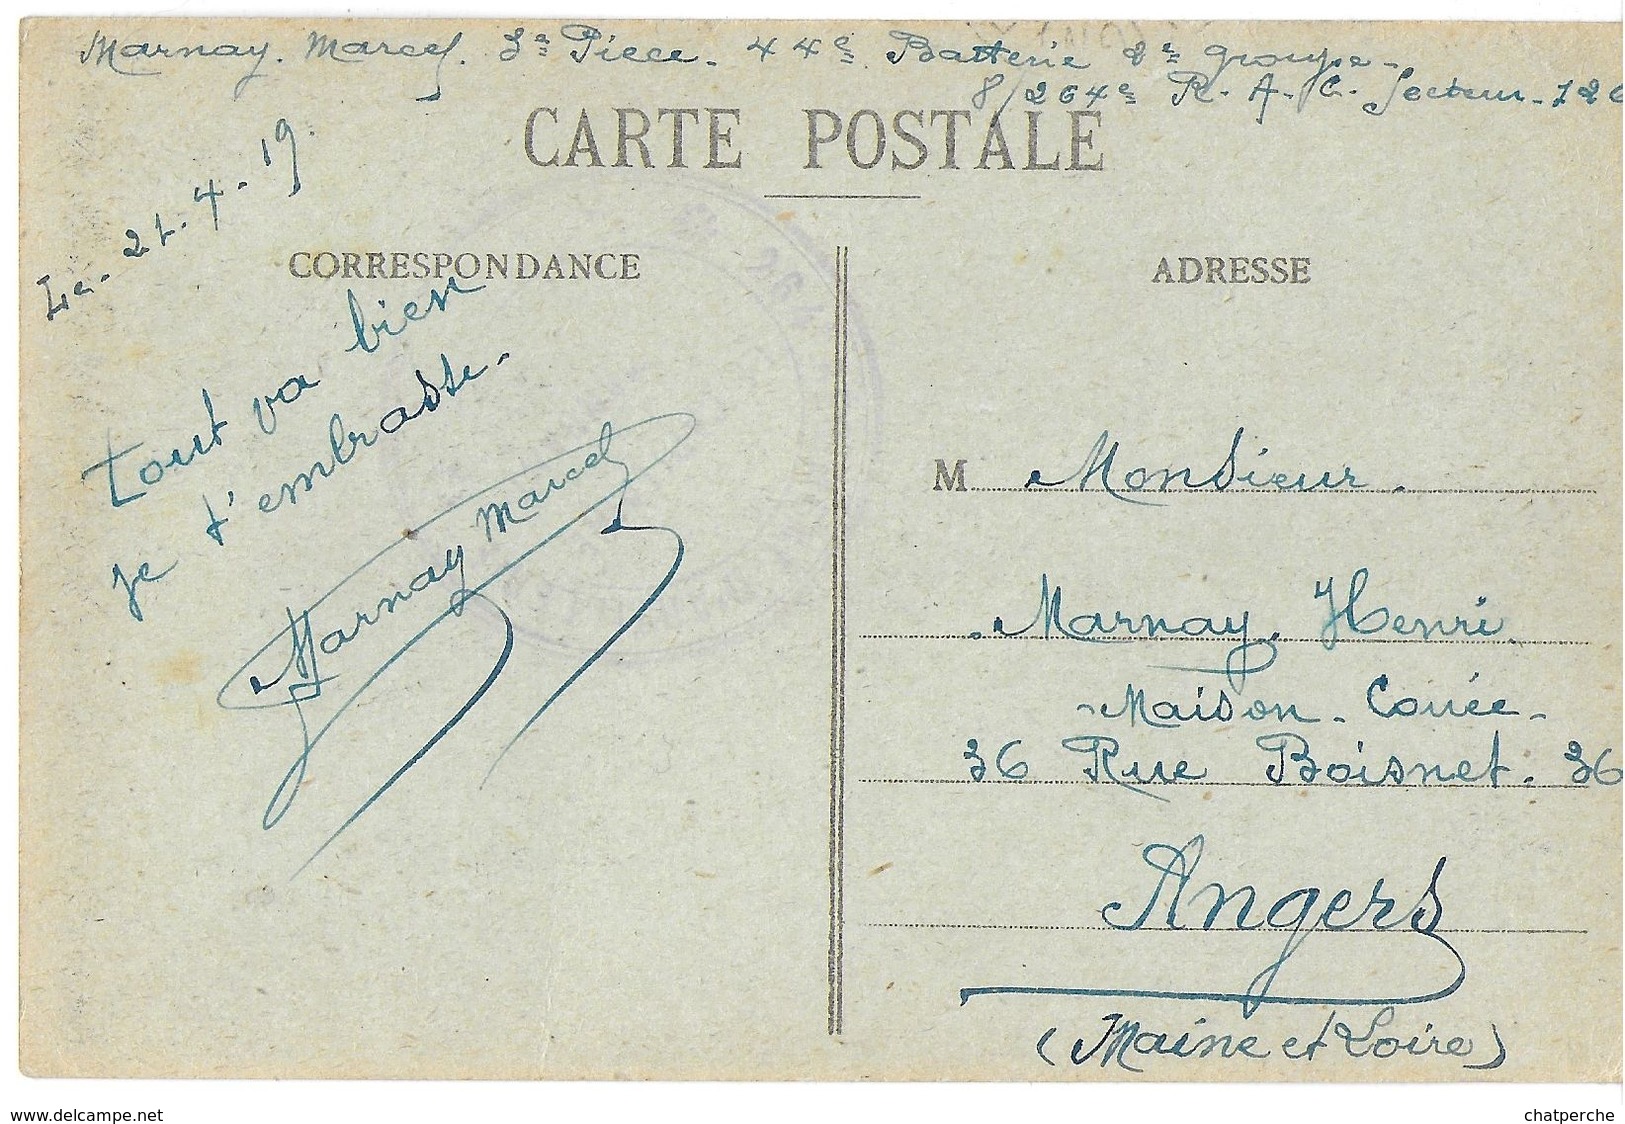 Marnay. Marcel. 3e Pièce. 44e Batterie 2e groupe.
264e R. A. C. Secteur. 126
CARTE POSTALE
Le. 21. 4. 19.
CORRESPONDANCE
Tout va bien
je t'embrasse.
Marnay Marcel
ADRESSE
M Monsieur.
Marnay. Henri.
Maison. Couée.
36 Rue Boisnet. 36
Angers
(Maine et Loire)
www.delcampe.net
chatperche